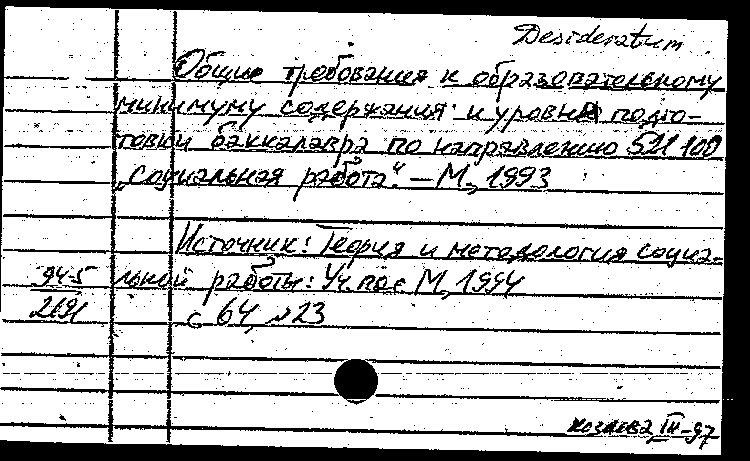 Desideratum
Общие требования к образовательному
минимуму содержания и уровню подго-
товки бакалавра по направлению 521100
„Социальная работа“. – М., 1993
Источник: Теория и методология социа-
94-5 льной работы: Уч. пос М., 1994
2691 с 64, №23
III-97